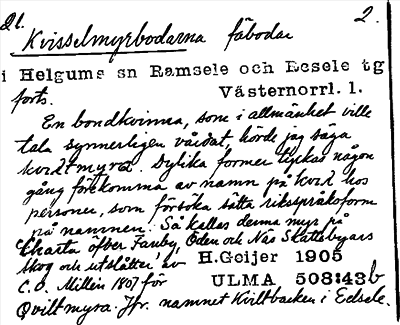 Ål. 2.
Kvisselmyrbodarna fäbodar
i Helgums sn Ramsele och Resele tg
forts. Västernorrl. l.
En bondkvinna, som i allmänhet ville
tala synnerligen vårdat, hörde jag säga
kvistmyra. Dylika former lyckas någon
gång förekomma av namn på kvisl hos
personer, som försöka sätta riksspråksform
på namnen. Så kallas denna myr på
"Charta öfver Fanby, Öden och Näs Skattebyars
skog och utslåtter" av H.Geijer 1905
C. O. Millén 1807 för ULMA 508:43b
Qviltmyra. Jfr. namnet Kviltbacken i Edsele.